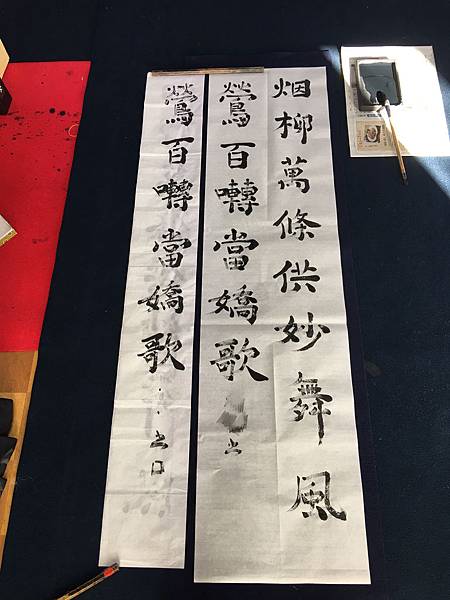 烟柳萬條供妙舞風
鶯百囀當嬌歌
書
鶯百囀當嬌歌